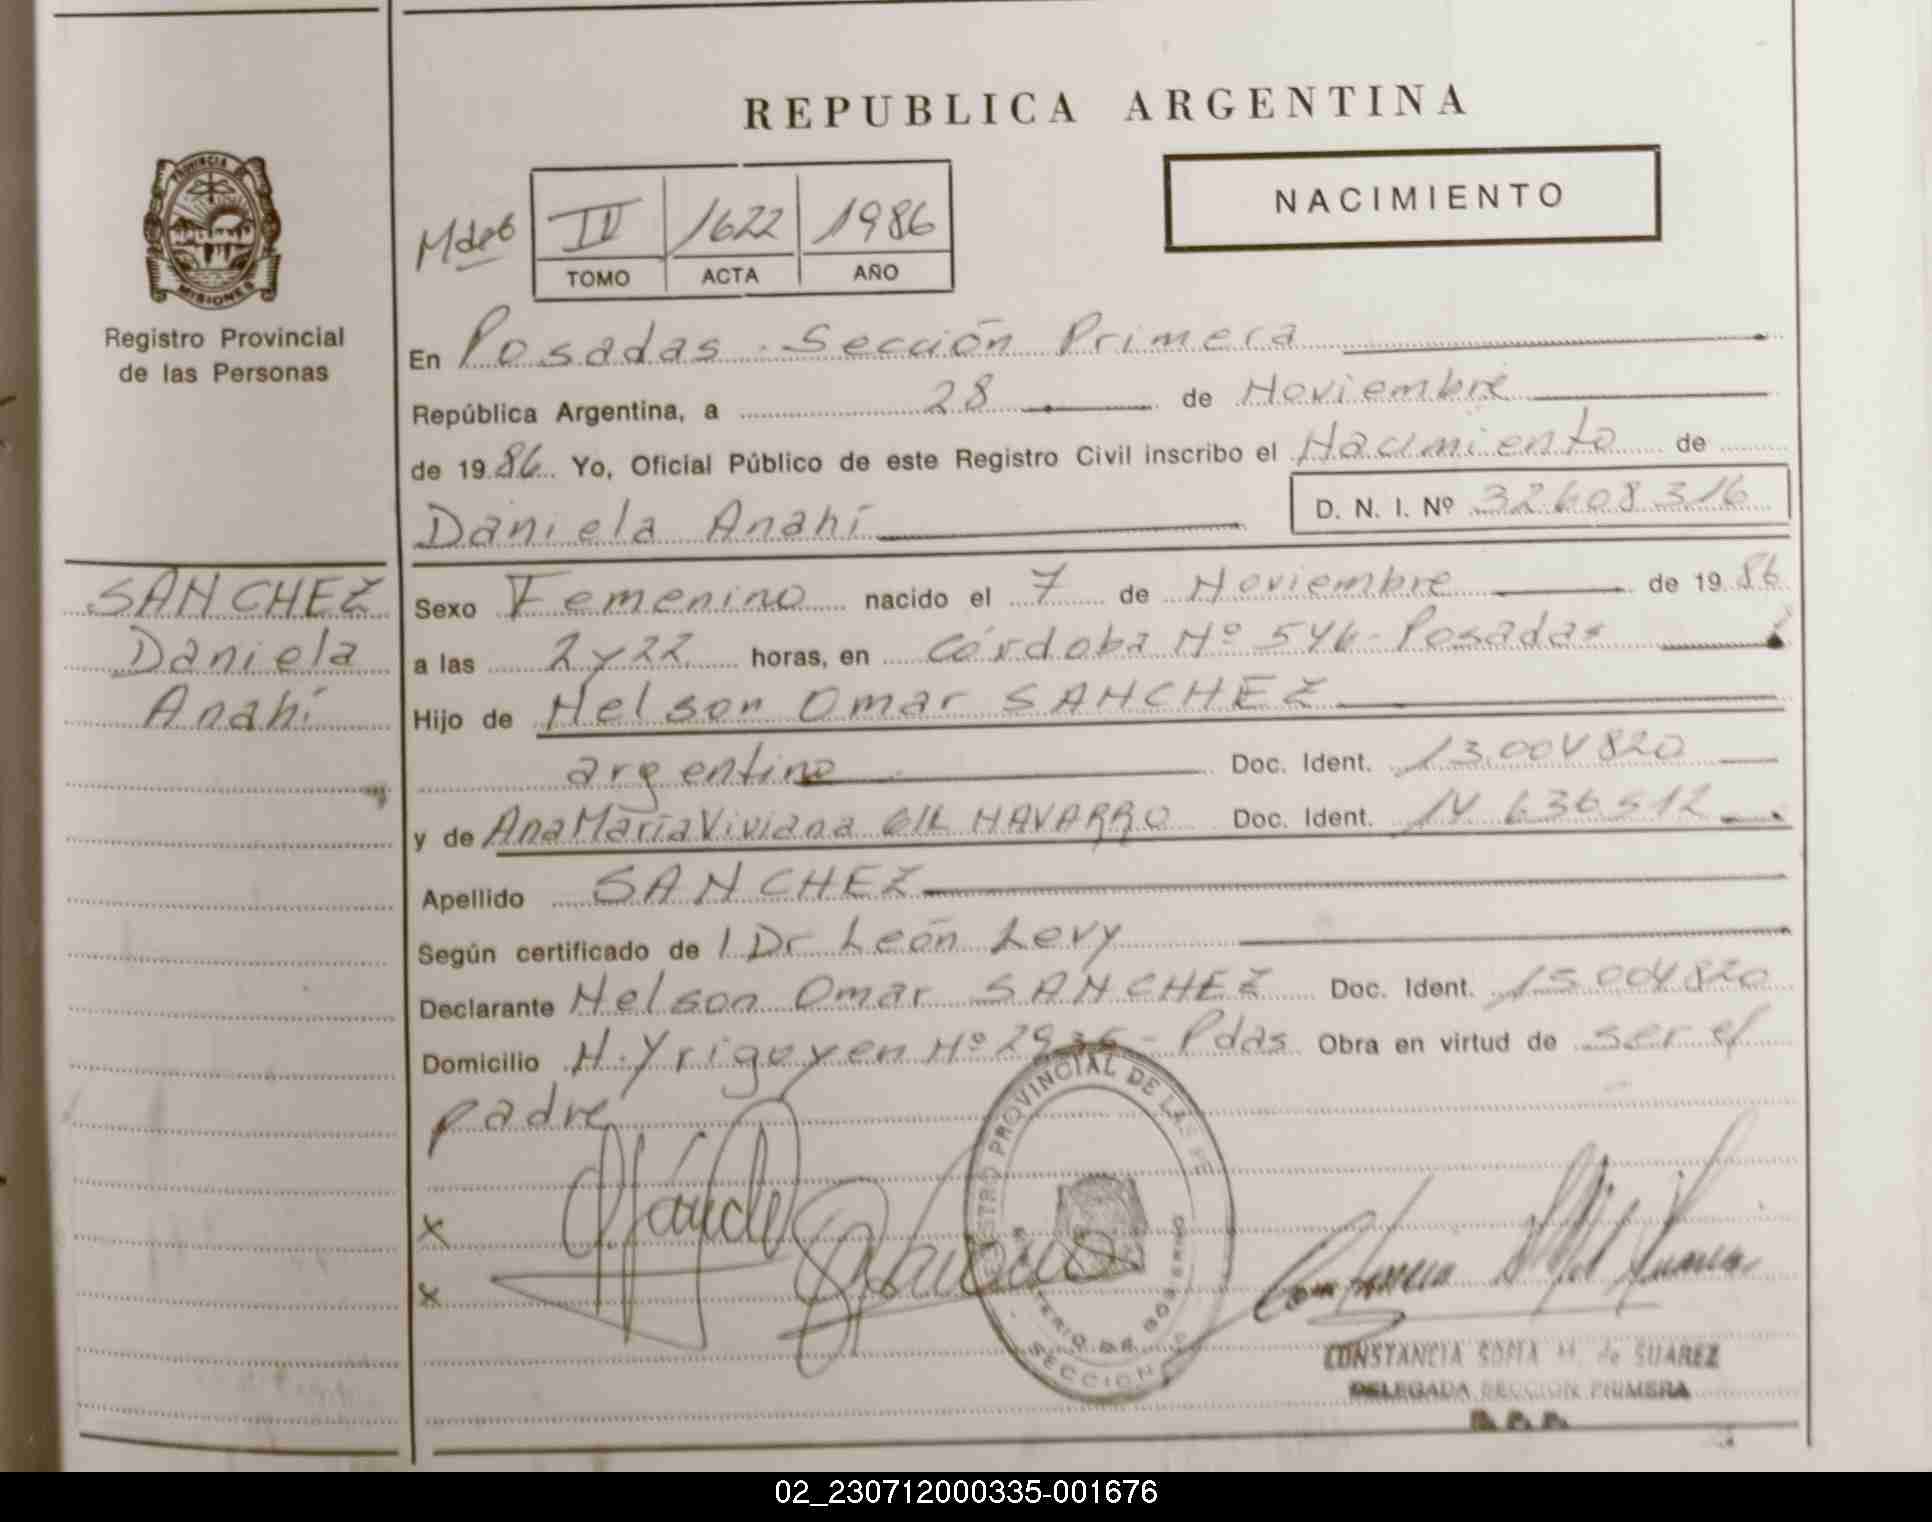 REPUBLICA ARGENTINA
NACIMIENTO
PROVINCIA DE
MISIONES
Registro Provincial
de las Personas
IV 1622 1986
TOMO ACTA AÑO
En Posadas - Sección Primera
República Argentina, a 28 de Noviembre
de 1986 Yo, Oficial Público de este Registro Civil inscribo el Nacimiento de
Daniela Anahí D. N. I. Nº 32608316
SANCHEZ
Daniela
Anahí
Sexo Femenino nacido el 7 de Noviembre de 1986
a las 2 y 22 horas, en Córdoba Nº 546 - Posadas
Hijo de Nelson Omar SANCHEZ
argentino Doc. Ident. 13.004820
y de Ana María Viviana GIL NAVARRO Doc. Ident. 14.636512
Apellido SANCHEZ
Según certificado de Dr León Levy
Declarante Nelson Omar SANCHEZ Doc. Ident. 13004820
Domicilio H. Yrigoyen Nº 2936 - Pdas Obra en virtud de ser el
padre
x
x
REGISTRO PROVINCIAL DE LAS PE
MINISTERIO DE GOBIERNO
SECCION
CONSTANCIA SOFIA M. de SUAREZ
DELEGADA SECCION PRIMERA
02_230712000335-001676